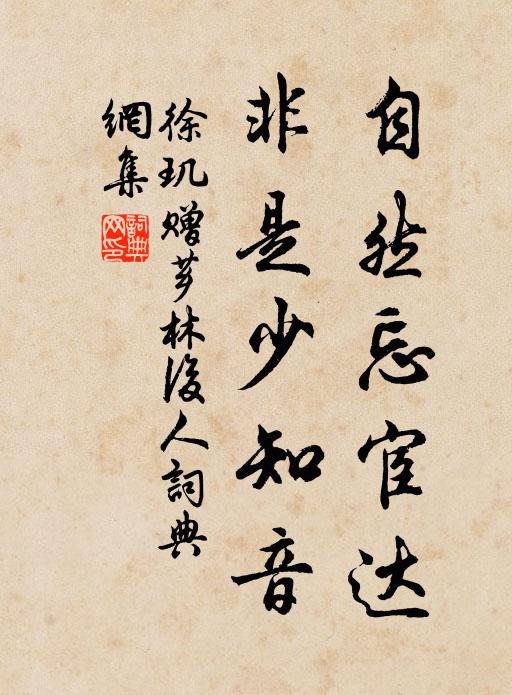 自然忘宦达
非是少知音
徐玑赠芗林后人詞典
網集
詞典網印